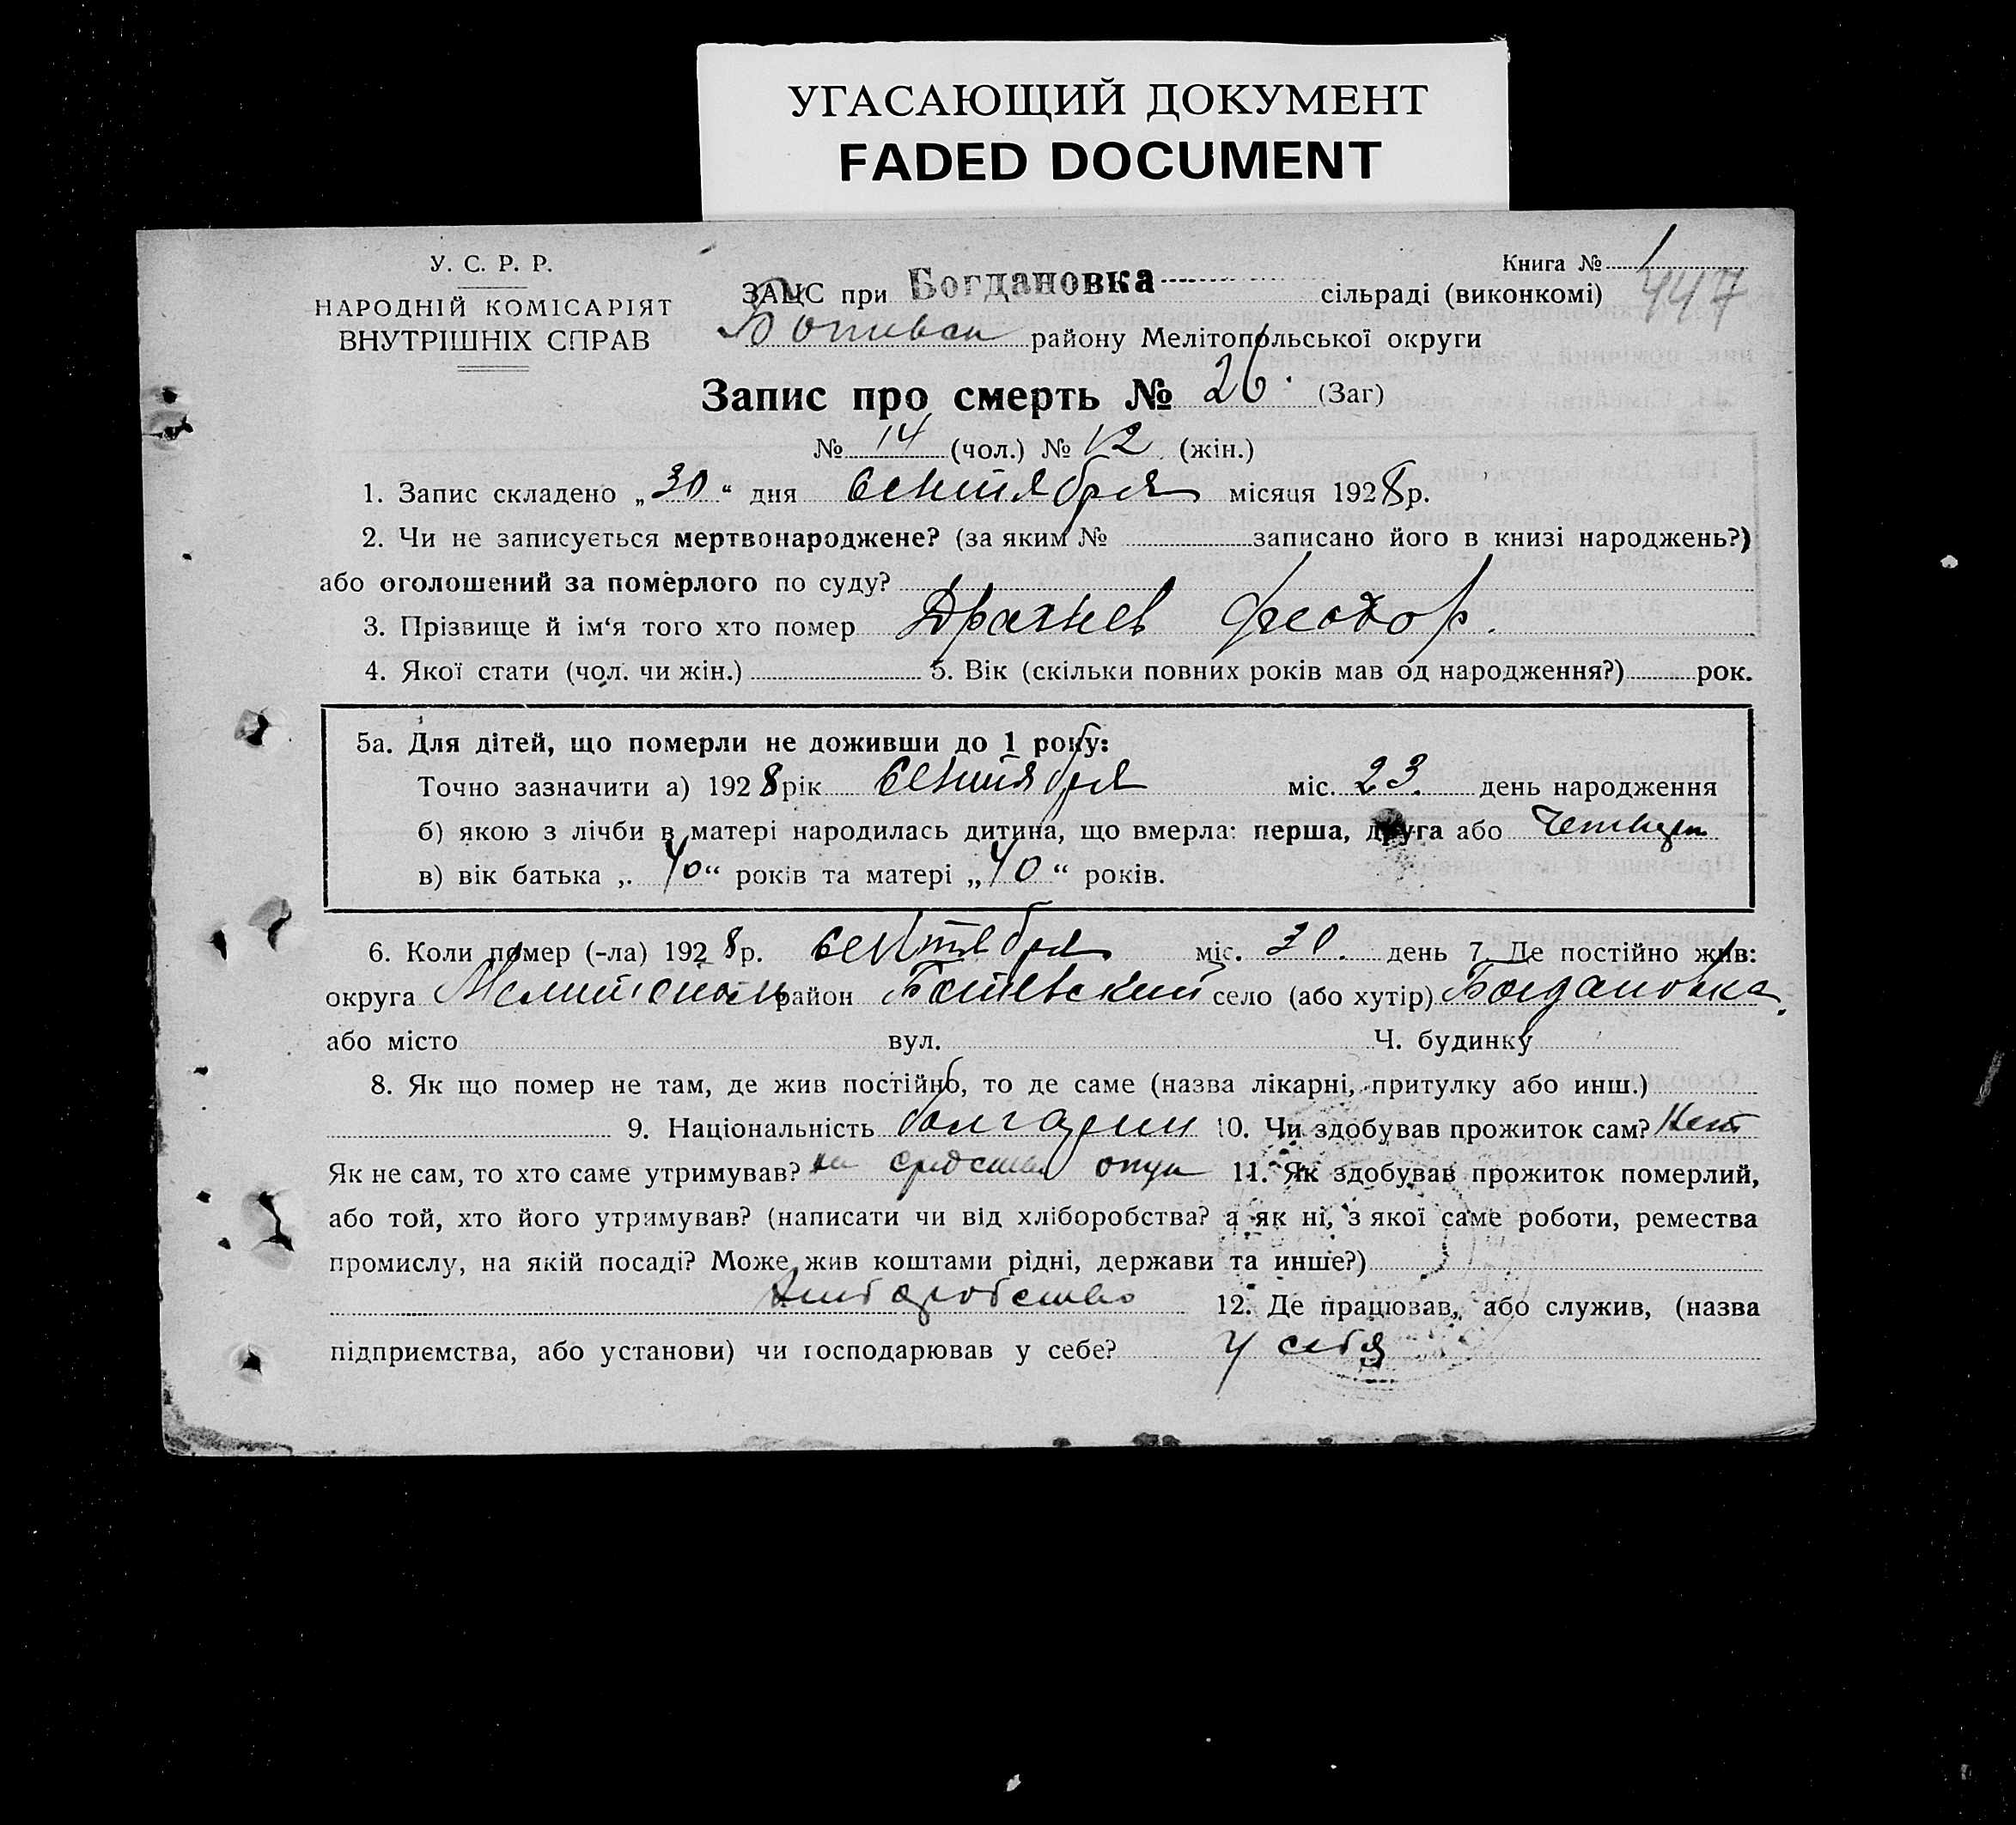 УГАСАЮЩИЙ ДОКУМЕНТ
FADED DOCUMENT
У. С. Р. Р.
НАРОДНІЙ КОМІСАРІЯТ
ВНУТРІШНІХ СПРАВ
Книга № 1
447
ЗАЦС при Богдановка сільраді (виконкомі)
району Мелітопольської округи
Запис про смерть № 26. (Заг)
№ 14 (чол.) № 12 (жін.)
1. Запис складено „30“ дня сентября місяця 1928р.
2. Чи не записується мертвонароджене? (за яким № записано його в книзі народжень?)
або оголошений за померлого по суду?
3. Прізвище й ім‘я того хто помер Драгнев Феодор.
4. Якої стати (чол. чи жін.) 5. Вік (скільки повних років мав од народження?) рок.
5а. Для дітей, що померли не доживши до 1 року:
Точно зазначити а) 1928 рік сентября міс. 23. день народження
б) якою з лічби в матері народилась дитина, що вмерла: перша, друга або
в) вік батька „40“ років та матері „40“ років.
6. Коли помер (-ла) 1928р. сентября міс. 30. день 7. Де постійно жив:
округа Мелитополь район Ботевский село (або хутір) Богдановка.
або місто вул. Ч. будинку
8. Як що помер не там, де жив постійно, то де саме (назва лікарні, притулку або инш.)
9. Національність болгарин 10. Чи здобував прожиток сам? Нет
Як не сам, то хто саме утримував? на 11. Як здобував прожиток померлий,
або той, хто його утримував? (написати чи від хліборобства? а як ні, з якої саме роботи, ремества
промислу, на якій посаді? Може жив коштами рідні, держави та инше?)
12. Де працював, або служив, (назва
підприємства, або установи) чи господарював у себе? у себя